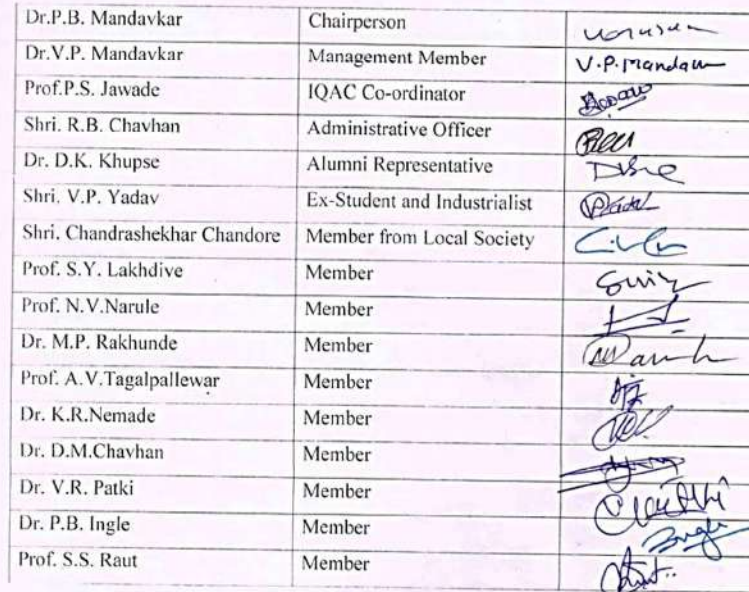 Dr.P.B. Mandavkar Chairperson
Dr.V.P. Mandavkar Management Member V.P.Mandavkar
Prof.P.S. Jawade IQAC Co-ordinator
Shri. R.B. Chavhan Administrative Officer
Dr. D.K. Khupse Alumni Representative
Shri. V.P. Yadav Ex-Student and Industrialist
Shri. Chandrashekhar Chandore Member from Local Society
Prof. S.Y. Lakhdive Member
Prof. N.V.Narule Member
Dr. M.P. Rakhunde Member
Prof. A.V.Tagalpallewar Member
Dr. K.R.Nemade Member
Dr. D.M.Chavhan Member
Dr. V.R. Patki Member
Dr. P.B. Ingle Member Ingle
Prof. S.S. Raut Member